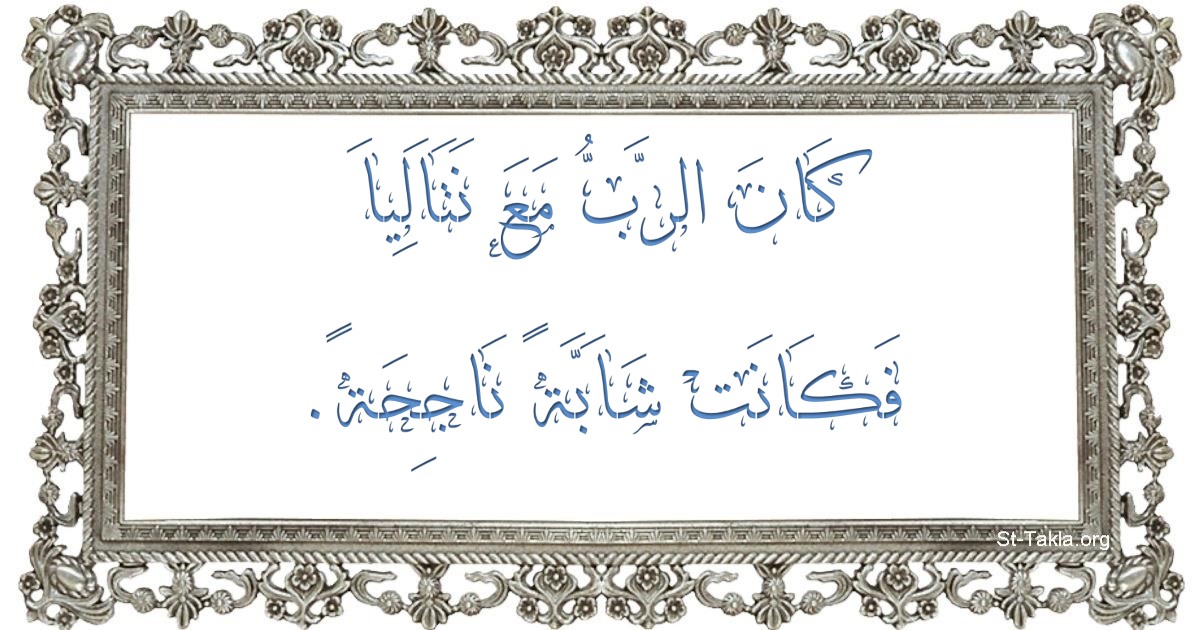 كَانَ الرَّبُّ مَعَ نَتَالِيَا
فَكَانَتْ شَابَّةً نَاجِحَةً.
St-Takla.org